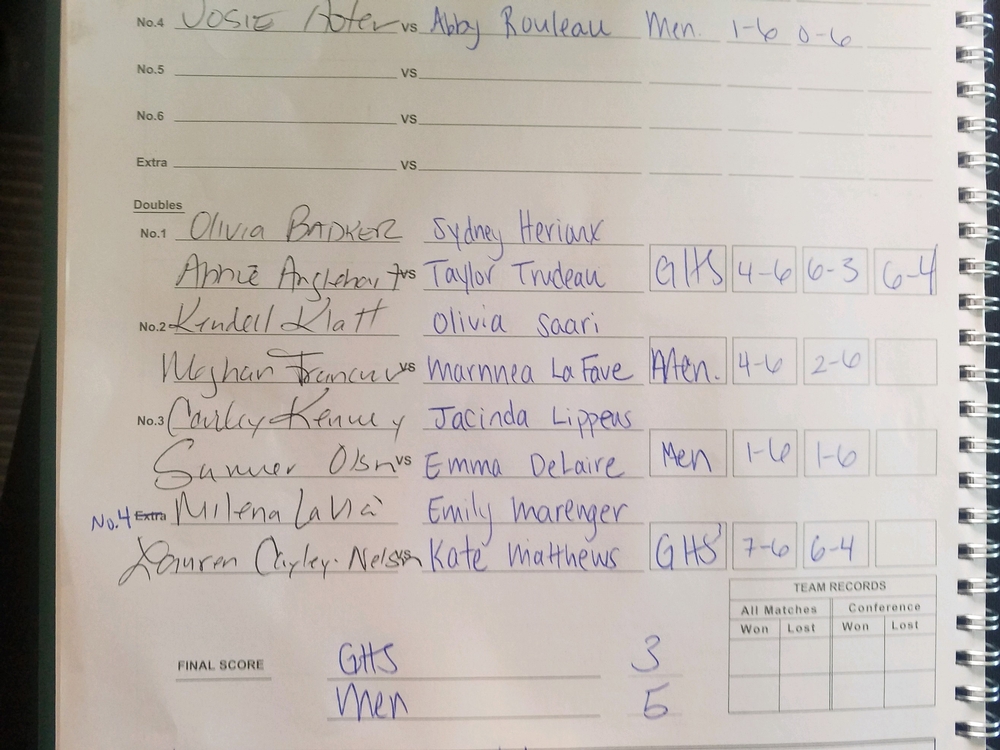 No.4 JOSIE Hoter vs Abby Rouleau Men. 1-6 0-6
No.5 vs
No.6 vs
Extra vs
Doubles
No.1 Olivia BADKER Sydney Herioux
Annie Anglehart vs Taylor Trudeau GHS 4-6 6-3 6-4
No.2 Kendell Klatt Olivia Saari
Meghan vs Marnnea LaFave Men. 4-6 2-6
No.3 Jacinda Lippens
Sumner Olsn vs Emma DeLaire Men 1-6 1-6
No.4 Extra Milena LaVia Emily Marenger
Lauren Cayley-Nelson vs Kate Matthews GHS 7-6 6-4
TEAM RECORDS
All Matches Conference
Won Lost Won Lost
FINAL SCORE GHS 3
Men 5